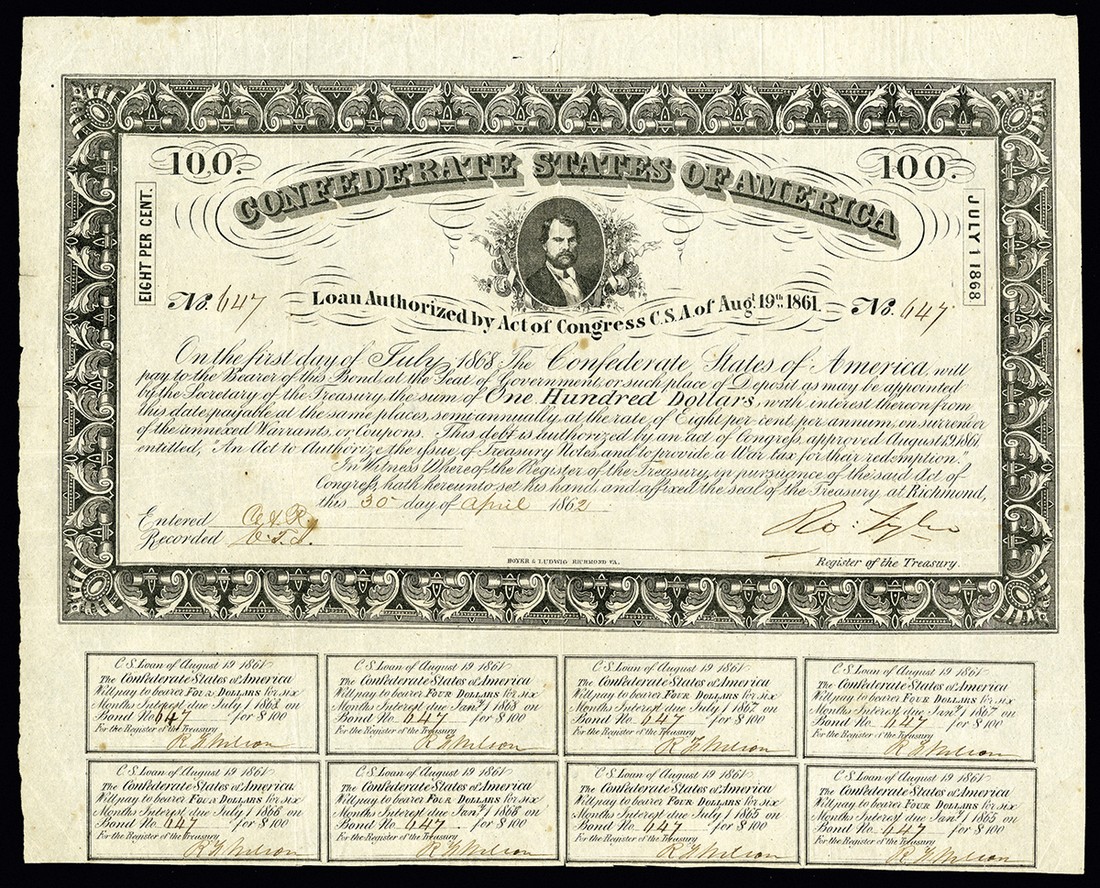 100. 100.
CONFEDERATE STATES OF AMERICA
EIGHT PER CENT.
JULY 1 1868
No. 647 No. 647
Loan Authorized by Act of Congress C.S.A. of Augt. 19th 1861.
On the first day of July 1868 The Confederate States of America, will
pay to the Bearer of this Bond, at the Seat of Government, or such place of Deposit as may be appointed
by the Secretary of the Treasury, the sum of One Hundred Dollars, with interest thereon from
this date, payable at the same places, semi-annually, at the rate of Eight per cent. per annum, on surrender
of the annexed Warrants, or Coupons. This debt is authorized by an act of Congress approved August 19, 1861
entitled, "An Act to Authorize the issue of Treasury Notes and to provide a War tax for their redemption."
In Witness Whereof the Register of the Treasury, in pursuance of the said Act of
Congress, hath hereunto set his hand, and affixed the seal of the Treasury, at Richmond,
this 30 day of April 1862
Entered
Recorded
Ro: Tyler
HOYER & LUDWIG RICHMOND VA.
Register of the Treasury.
C.S. Loan of August 19 1861
The Confederate States of America
Will pay to bearer FOUR DOLLARS for six
Months Interest due July 1 1868 on
Bond No. 647 for $100
For the Register of the Treasury
R H Wilson
C.S. Loan of August 19 1861
The Confederate States of America
Will pay to bearer FOUR DOLLARS for six
Months Interest due Jany 1 1868 on
Bond No. 647 for $100
For the Register of the Treasury
R H Wilson
C.S. Loan of August 19 1861
The Confederate States of America
Will pay to bearer FOUR DOLLARS for six
Months Interest due July 1 1867 on
Bond No. 647 for $100
For the Register of the Treasury
R H Wilson
C.S. Loan of August 19 1861
The Confederate States of America
Will pay to bearer FOUR DOLLARS for six
Months Interest due Jany 1 1867 on
Bond No. 647 for $100
For the Register of the Treasury
R H Wilson
C.S. Loan of August 19 1861
The Confederate States of America
Will pay to bearer FOUR DOLLARS for six
Months Interest due July 1 1866 on
Bond No. 647 for $100
For the Register of the Treasury
R H Wilson
C.S. Loan of August 19 1861
The Confederate States of America
Will pay to bearer FOUR DOLLARS for six
Months Interest due Jany 1 1866 on
Bond No. 647 for $100
For the Register of the Treasury
R H Wilson
C.S. Loan of August 19 1861
The Confederate States of America
Will pay to bearer FOUR DOLLARS for six
Months Interest due July 1 1865 on
Bond No. 647 for $100
For the Register of the Treasury
R H Wilson
C.S. Loan of August 19 1861
The Confederate States of America
Will pay to bearer FOUR DOLLARS for six
Months Interest due Jany 1 1865 on
Bond No. 647 for $100
For the Register of the Treasury
R H Wilson